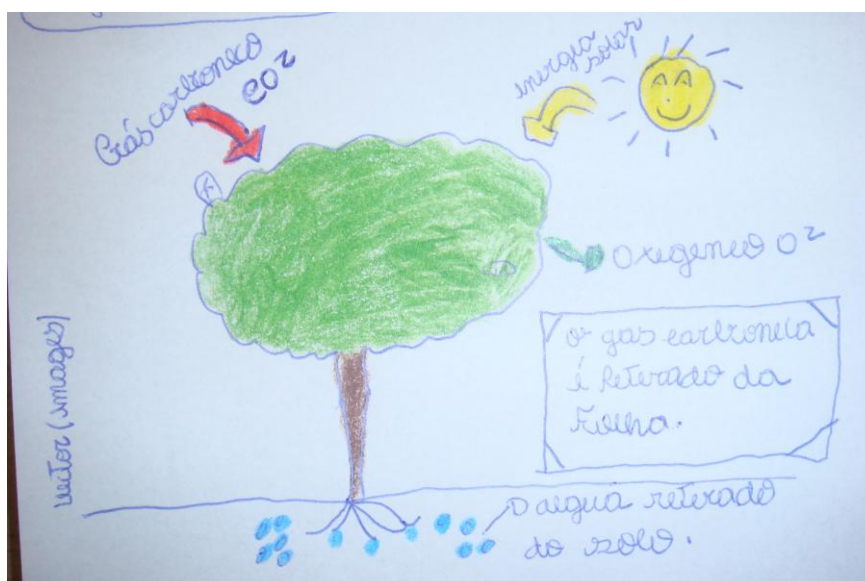 Gás carbonico
CO²
energia
solar
Oxigenio O²
O gas carbonica
é retirado da
Folha.
vector (images)
D aegua retirado
do solo.